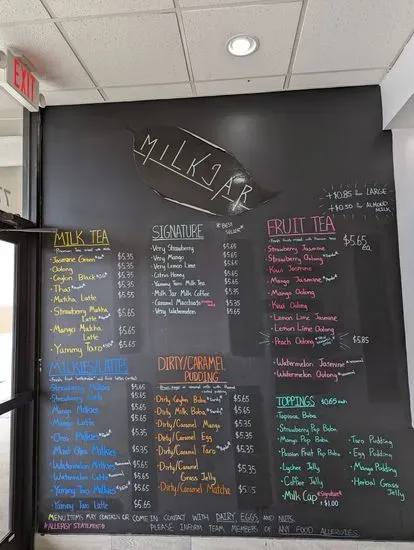 EXIT
MILKJAR
+$0.85 for LARGE
+$0.50 for ALMOND MILK
MILK TEA
Jasmine Green $5.35
Oolong $5.35
Ceylon Black $5.35
Thai $5.35
Matcha Latte $5.55
Strawberry Matcha Latte $5.65
Mango Matcha Latte $5.65
Yammy Taro $5.65
SIGNATURE
*BEST SELLER*
Very Strawberry $5.65
Very Mango $5.65
Very Lemon Lime $5.65
Citrus Honey $5.65
Yammy Taro Milk Tea $5.65
Milk Jar Milk Coffee $5.35
Caramel Macchiato $5.35
Very Watermelon $5.65
FRUIT TEA
Fresh fruits mixed with Premium Teas
$5.65 ea.
Strawberry Jasmine
Strawberry Oolong
Kiwi Jasmine
Mango Jasmine
Mango Oolong
Kiwi Oolong
Lemon Lime Jasmine
Lemon Lime Oolong
Peach Oolong $5.85
Watermelon Jasmine
Watermelon Oolong
MILKIES/LATTES
Strawberry Milkies $5.65
Strawberry Latte $5.65
Mango Milkies $5.65
Mango Latte $5.65
Oreo Milkies $5.65
Matcha Oreo Milkies $5.65
Watermelon Milkies $5.65
Watermelon Latte $5.65
Yammy Taro Milkies $5.65
Yammy Taro Latte $5.65
DIRTY/CARAMEL PUDDING
Dirty Ceylon Boba $5.65
Dirty Milk Boba $5.65
Dirty/Caramel Mango $5.35
Dirty/Caramel Egg $5.35
Dirty/Caramel Taro $5.35
Dirty/Caramel Grass Jelly $5.35
Dirty/Caramel Matcha
TOPPINGS $0.65 each
Tapioca Boba
Strawberry Pop Boba
Mango Pop Boba
Passion Fruit Pop Boba
Lychee Jelly
Coffee Jelly
Milk Cap *Signature* +$1.00
Taro Pudding
Egg Pudding
Mango Pudding
Herbal Grass Jelly
MENU ITEMS MAY CONTAIN OR COME IN CONTACT WITH DAIRY, EGGS, AND NUTS.
*ALLERGY STATEMENT* PLEASE INFORM TEAM MEMBERS OF ANY FOOD ALLERGIES